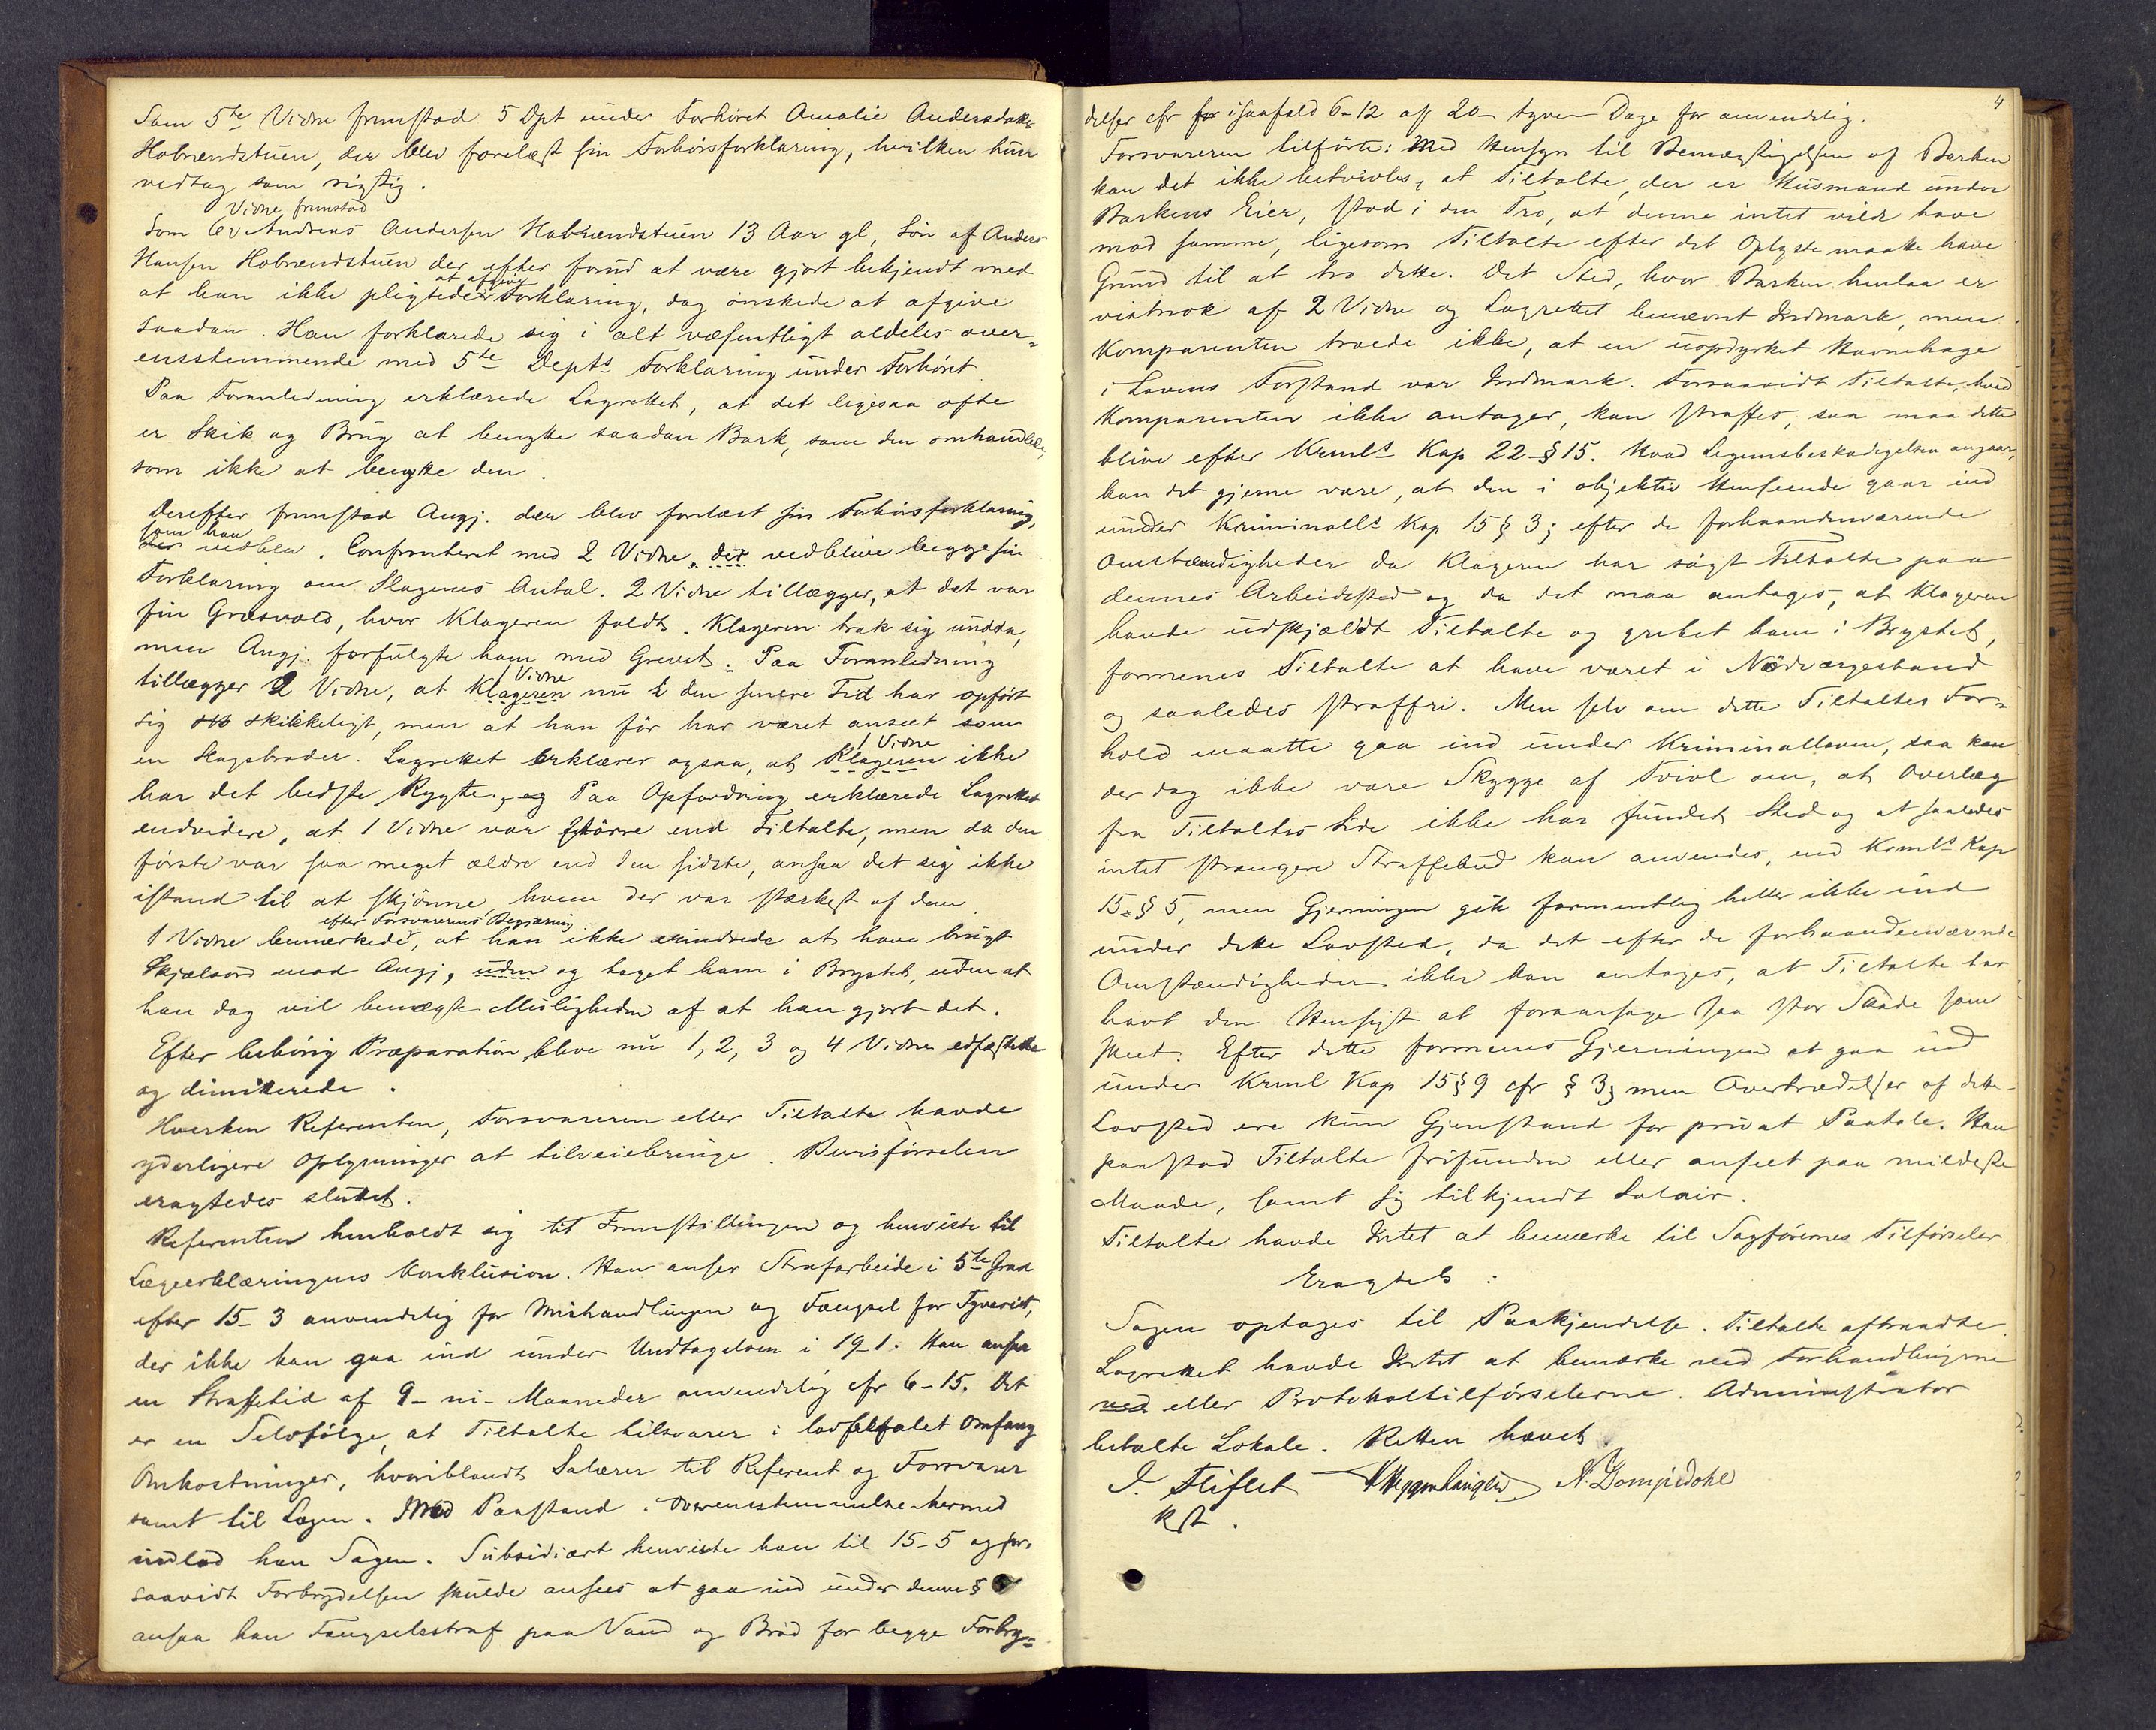 Som 5te Vidne fremstod 5 Dpt under Forhöret Amalie Andersdatter
Hobrændstuen, der blev forelæst sin Forhörsforklaring, hvilken hun
vedtog som rigtig.
Vidne fremstod
Som 6v Andreas Andersen Hobrændstuen 13 Aar gl, Sön af Anders
Hansen Hobrændstuen der efter forud at være gjort bekjendt med
at afgive
at han ikke pligtede Forklaring, dog önskede at afgive
saadan. Han forklarede sig i alt væsentligt aldeles over-
ensstemmende med 5te Depts Forklaring under Forhöret.
Paa Foranledning erklærede Lagrettet, at det ligesaa ofte
er Skik og Brug at benytte saadan Bark, som den omhandlede,
som ikke at benytte den.
Derefter fremstod Angj. der blev forelæst sin Forhörsforklaring,
som han
der vedblev. Confronteret med 2 Vidne, der vedblive begge sin
Forklaring om Slagenes Antal. 2 Vidne tillægger, at det var
fin Græsvold, hvor Klageren faldt. Klageren trak sig undda,
men Angj. forfulgte ham med Grevet. Paa Foranledning
1 Vidne
tillægger 2 Vidne, at Klageren nu i den senere Tid har opfört
sig skikkeligt, men at han för har været anseet som
1 Vidne
en Slagsbroder. Lagrettet erklærer ogsaa, at Klageren ikke
har det bedste Rygte, og Paa Opfordring erklærede Lagrettet
endvidere, at 1 Vidne var större end Tiltalte, men da den
förste var saa meget ældre end den sidste, ansaa det sig ikke
istand til at skjönne, hvem der var stærkest af dem
efter Forsvarerens Begjæring
1 Vidne bemærkede, at han ikke erindrede at have brugt
Skjælsord mod Angj, uden og taget ham i Brystet, uden at
han dog vil benægte Muligheden af at han gjort det.
Efter behörig Præparation bleve nu 1, 2, 3 og 4 Vidne edfæstede
og dimitterede.
Hverken Referenten, Forsvareren eller Tiltalte havde
yderligere Oplysninger at tilveiebringe. Bevisförselen
eragtedes sluttet.
Referenten henholdt sig til Fremstillingen og henviste til
Lægeerklæringens Konklusion. Han anser Strafarbeide i 5te Grad
efter 15-3 anvendelig for Mishandlingen og Fængsel for Tyveriet,
der ikke kan gaa ind under Undtagelsen i 19-1. Han ansaa
en Straffetid af 9 - ni - Maaneder anvendelig cfr 6-15. Det
er en Selvfölge, at Tiltalte tilsvarer i lovbefalet Omfang
Omkostninger, hvoriblandt Salærer til Referent og Forsvarer
samt til Lægen. Med Paastand i Overensstemmelse hermed
indlod han Sagen. Subsidiært henviste han til 15-5 og for-
saavidt Forbrydelsen skulde ansees at gaa ind under denne §
ansaa han Fængselsstraf paa Vand og Bröd for begge Forbry-
4
delser cfr for isaafald 6-12 af 20 - tyve - Dage for anvendelig.
Forsvareren tilförte: Med Hensyn til Bemægtigelsen af Barken
kan det ikke betvivles, at Tiltalte, der er Husmand under
Barkens Eier, stod i den Tro, at denne intet vilde have
mod samme, ligesom Tiltalte efter det Oplyste maatte have
Grund til at tro dette. Det Sted, hvor Barken henlaa er
vistnok af 2 Vidne og Lagrettet benævnt Indmark, men
Komparenten troede ikke, at en uopdyrket Havnehage
i Lovens Forstand var Indmark. Forsaavidt Tiltalte, hvad
Komparenten ikke antager, kan straffes, saa maa dette
blive efter Krmls Kap 22-§15. Hvad Legemsbeskadigelsen angaar,
kan det gjerne være, at den i objektiv Henseende gaar ind
under Kriminalls Kap 15 § 3; efter de forhaandenværende
Omstændigheder da Klageren har sögt Tiltalte paa
dennes Arbeidssted og da det maa antages, at Klageren
havde udskjældt Tiltalte og grebet ham i Brystet,
formenes Tiltalte at have været i Nödværgestand
og saaledes straffri. Men selv om dette Tiltaltes For-
hold maatte gaa ind under Kriminalloven, saa kan
der dog ikke være Skygge af Tvivl om, at Overlæg
fra Tiltaltes Side ikke har fundet Sted og at saaledes
intet strængere Straffebud kan anvendes, end Krmls Kap
15-§5, men Gjerningen gik formentlig heller ikke ind
under dette Lovsted, da det efter de forhaandenværende
Omstændigheder ikke kan antages, at Tiltalte har
havt den Hensigt at foraarsage saa stor Skade som
skeet. Efter dette formenes Gjerningen at gaa ind
under Krml Kap 15 § 9 cfr § 3; men Overtrædelser af dette
Lovsted ere kun Gjenstand for privat Paatale. Han
paastod Tiltalte frifunden eller anseet paa mildeste
Maade, samt sig tilkjendt Salair.
Tiltalte havde Intet at bemærke til Sagförernes Tilförseler.
Eragtet:
Sagen optages til Paakjendelse. Tiltalte aftraadte.
Lagrettet havde Intet at bemærke ved Forhandlingerne
ved eller Protokoltilförselerne. Administrator
betalte Lokale. Retten hævet.
J. Fleflet N. Dompidahl
Kst.